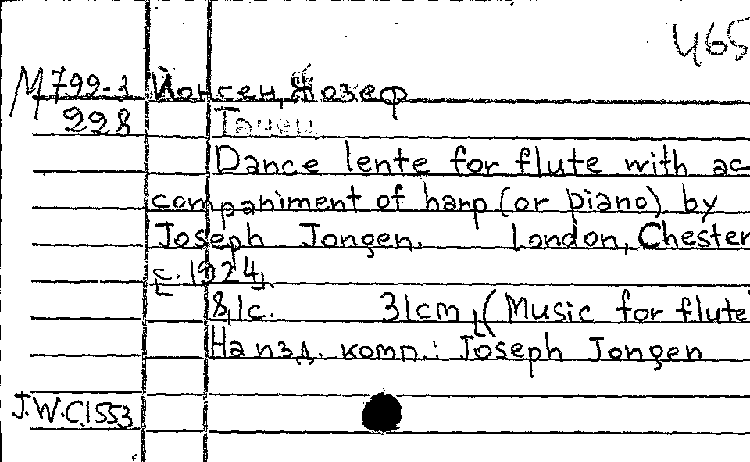 465
M799-1 Йонсен, Жозеф
228 Танец
Dance lente for flute with ac-
companiment of harp (or piano) by
Joseph Jongen. London, Chester
[c. 1924]
8,1c. 31cm, (Music for flute
На изд. комп.: Joseph Jongen
J.W.C.1553